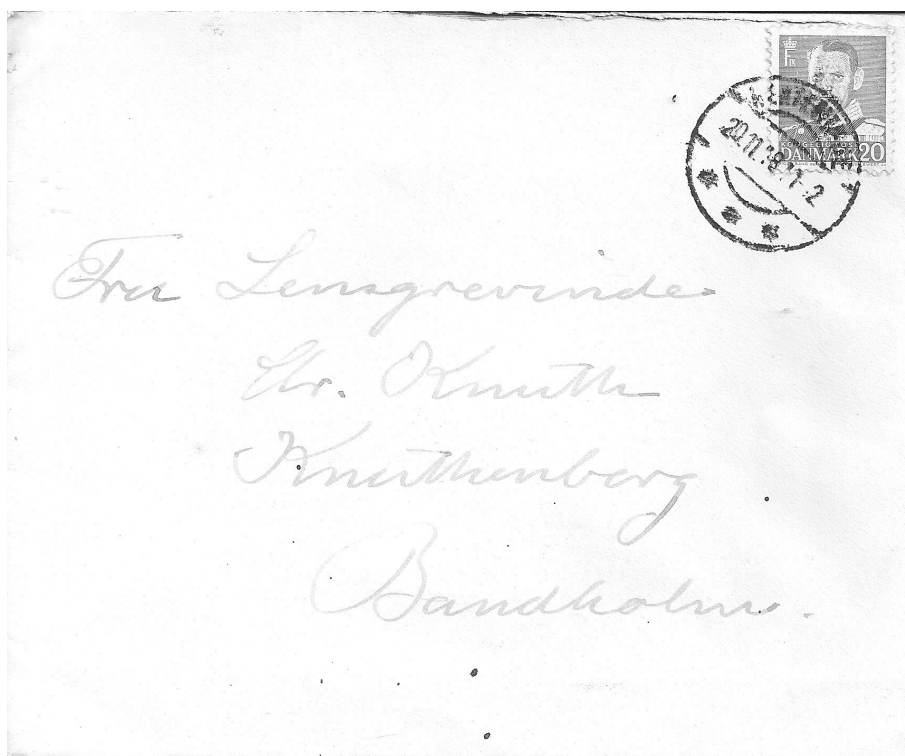 F IX
KONGELIG POST
DANMARK 20
20.11.
Fru Lensgrevinde
Chr. Knuth
Knuthenborg
Bandholm.